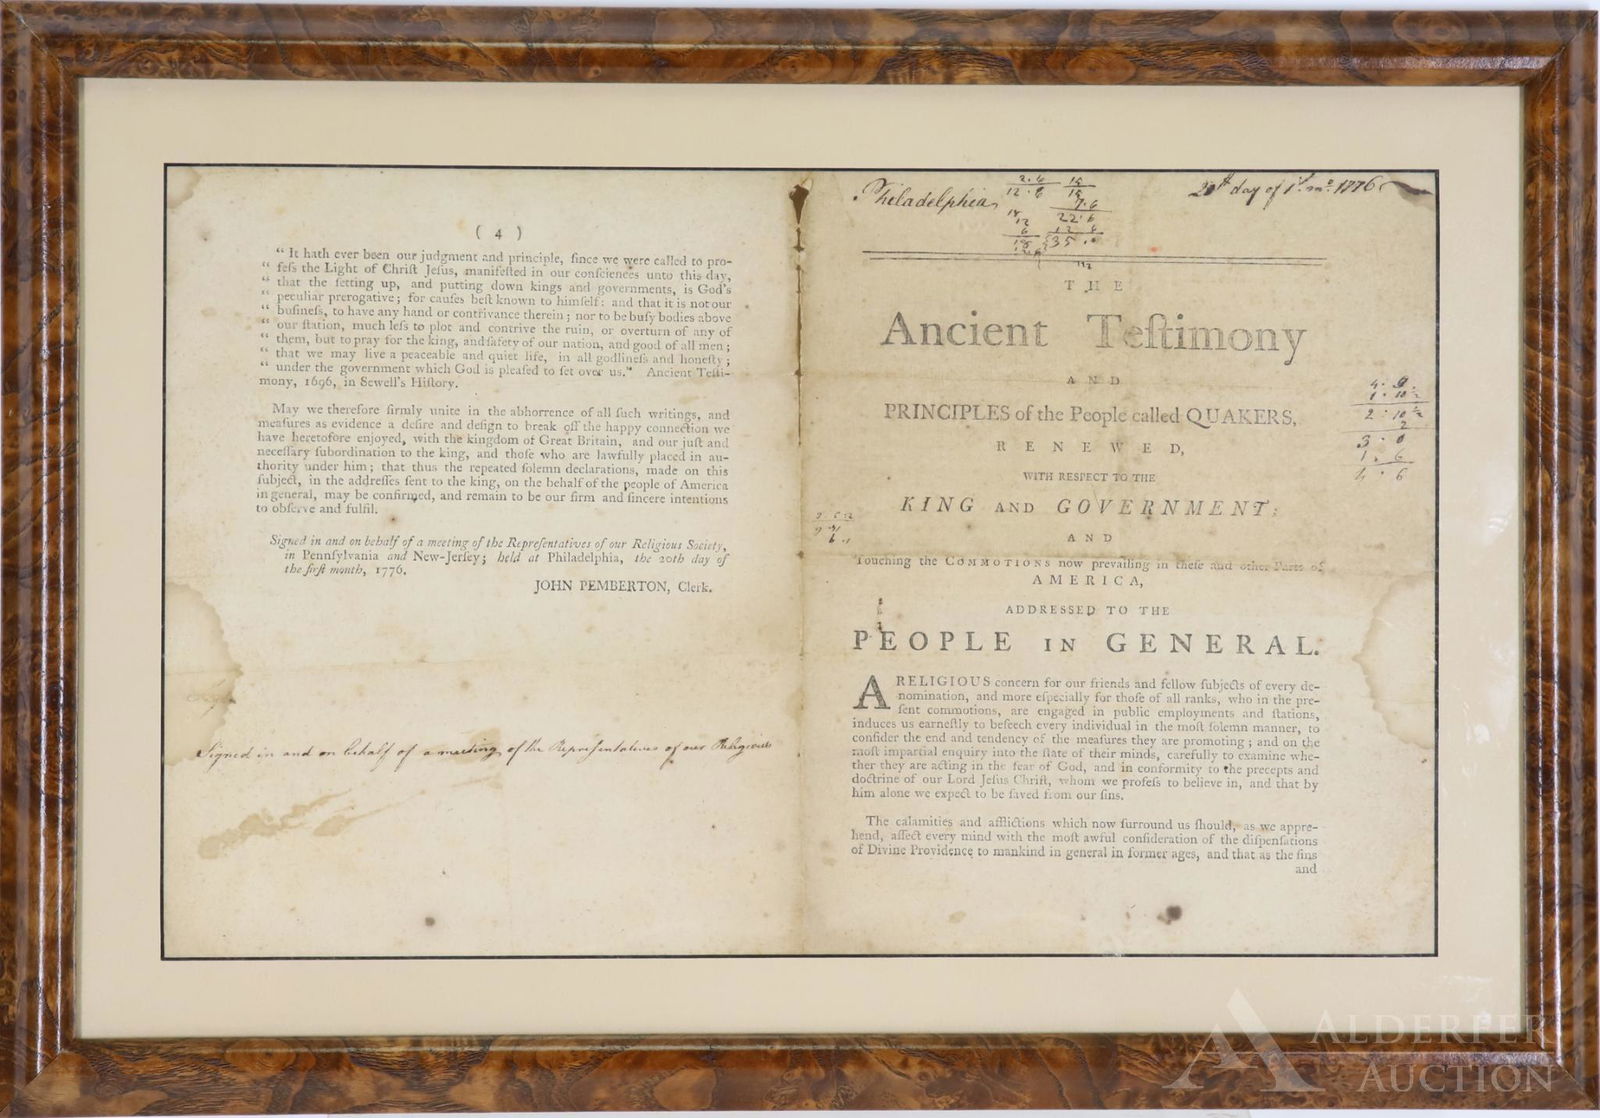 ( 4 )
“ It hath ever been our judgment and principle, ſince we were called to pro-
“ feſs the Light of Chriſt Jeſus, manifeſted in our conſciences unto this day,
“ that the ſetting up, and putting down kings and governments, is God's
“ peculiar prerogative; for cauſes beſt known to himſelf: and that it is not our
“ buſineſs, to have any hand or contrivance therein; nor to be buſy bodies above
“ our ſtation, much leſs to plot and contrive the ruin, or overturn of any of
“ them, but to pray for the king, and ſafety of our nation, and good of all men;
“ that we may live a peaceable and quiet life, in all godlineſs and honeſty;
“ under the government which God is pleaſed to ſet over us.” Ancient Teſti-
mony, 1696, in Sewell's Hiſtory.
May we therefore firmly unite in the abhorrence of all ſuch writings, and
meaſures as evidence a deſire and deſign to break off the happy connection we
have heretofore enjoyed, with the kingdom of Great Britain, and our juſt and
neceſſary ſubordination to the king, and thoſe who are lawfully placed in au-
thority under him; that thus the repeated ſolemn declarations, made on this
ſubject, in the addreſſes ſent to the king, on the behalf of the people of America
in general, may be confirmed, and remain to be our firm and ſincere intentions
to obſerve and fulfil.
Signed in and on behalf of a meeting of the Repreſentatives of our Religious Society,
in Pennſylvania and New-Jerſey; held at Philadelphia, the 20th day of
the firſt month, 1776.
JOHN PEMBERTON, Clerk.
Signed in and on behalf of a meeting of the Repreſentatives of our Religious
Philadelphia 20th day of 1st mo. 1776
2.6 15
12.6 15
7.6
22.6
12 6
18 35
THE
Ancient Teſtimony
AND
PRINCIPLES of the People called QUAKERS,
RENEWED,
WITH RESPECT TO THE
KING AND GOVERNMENT:
AND
Touching the COMMOTIONS now prevailing in theſe and other Parts of
AMERICA,
ADDRESSED TO THE
PEOPLE IN GENERAL.
A RELIGIOUS concern for our friends and fellow ſubjects of every de-
nomination, and more eſpecially for thoſe of all ranks, who in the pre-
ſent commotions, are engaged in public employments and ſtations,
induces us earneſtly to beſeech every individual in the moſt ſolemn manner, to
conſider the end and tendency of the meaſures they are promoting; and on the
moſt impartial enquiry into the ſtate of their minds, carefully to examine whe-
ther they are acting in the fear of God, and in conformity to the precepts and
doctrine of our Lord Jeſus Chriſt, whom we profeſs to believe in, and that by
him alone we expect to be ſaved from our ſins.
The calamities and afflictions which now ſurround us ſhould, as we appre-
hend, affect every mind with the moſt awful conſideration of the diſpenſations
of Divine Providence to mankind in general in former ages, and that as the ſins
and
3 . 0
1 . 6
4 . 6
ALDERFER
AUCTION